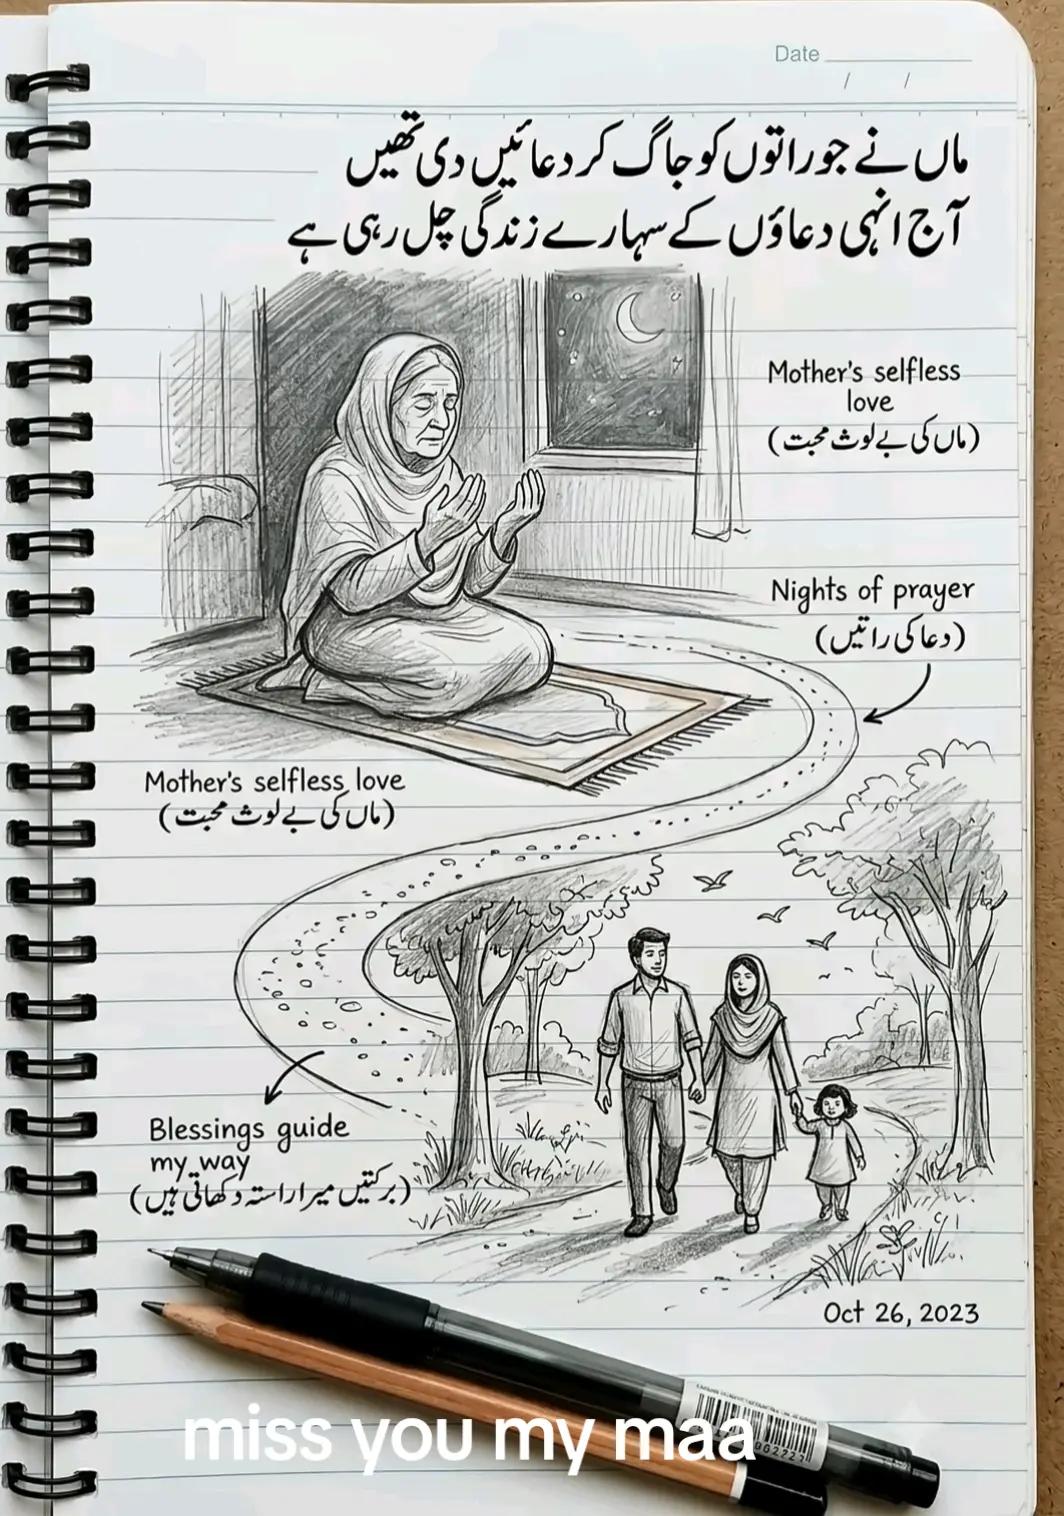 Date
/ /
ماں نے جو راتوں کو جاگ کر دعائیں دی تھیں
آج انہی دعاؤں کے سہارے زندگی چل رہی ہے
Mother's selfless
love
(ماں کی بے لوث محبت)
Nights of prayer
(دعا کی راتیں)
Mother's selfless love
(ماں کی بے لوث محبت)
Blessings guide
my way
(برکتیں میرا راستہ دکھاتی ہیں)
Oct 26, 2023
miss you my maa